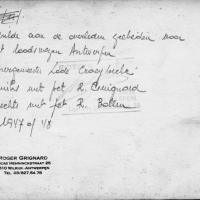 hulde aan de overleden gebieden voor
het loodswezen Antwerpen
burgemeester Lode Craeybeckx
links met pet R. Grignard
rechts met pet R. Bolten
1947 of 48
ROGER GRIGNARD
LUCAS HENNINCKSTRAAT 25
2610 WILRIJK-ANTWERPEN
TEL. 03/827.64.78